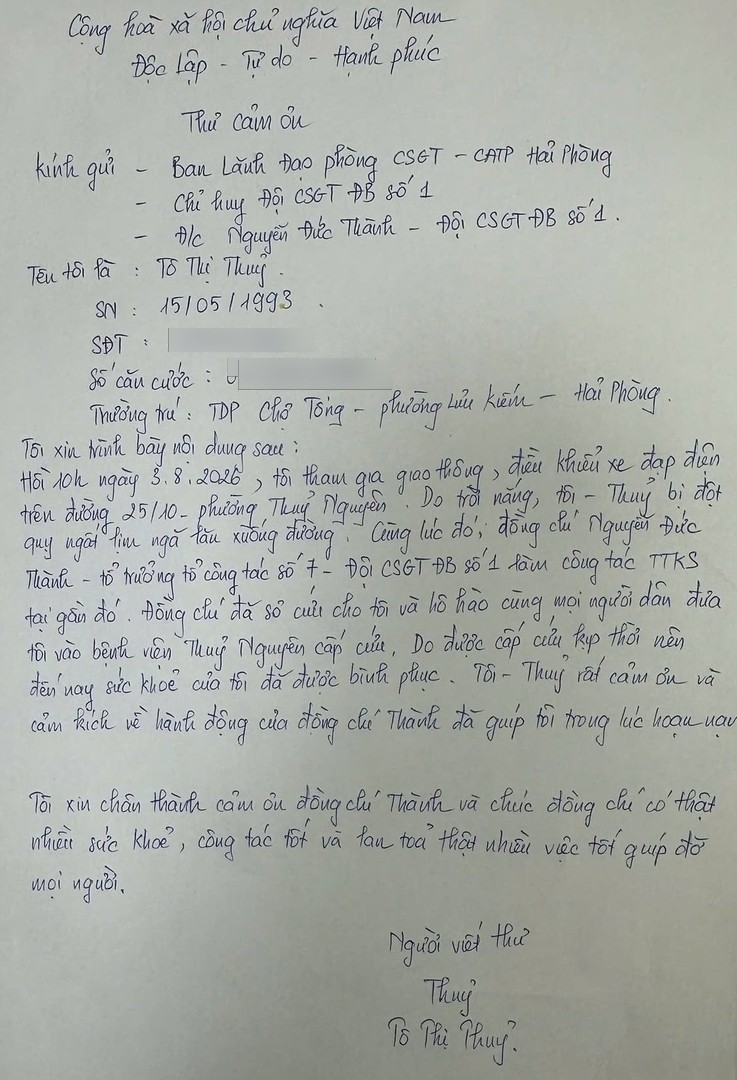 Cộng hoà xã hội chủ nghĩa Việt Nam
Độc Lập - Tự do - Hạnh phúc
Thư cảm ơn
Kính gửi - Ban Lãnh Đạo phòng CSGT - CATP Hải Phòng
- Chỉ huy Đội CSGT ĐB số 1
- Đ/c Nguyễn Đức Thành - Đội CSGT ĐB số 1.
Tên tôi là : Tô Thị Thuỷ.
SN : 15/05/1993.
SĐT :
Số căn cước :
Thường trú : TDP Chợ Tổng - phường Lưu Kiếm - Hải Phòng.
Tôi xin trình bày nội dung sau :
Hồi 10h ngày 3.8.2026, tôi tham gia giao thông, điều khiển xe đạp điện
trên đường 25/10 - phường Thuỷ Nguyên. Do trời nắng, tôi - Thuỷ bị đột
quỵ ngất lim ngã lăn xuống đường. Cùng lúc đó, đồng chí Nguyễn Đức
Thành - tổ trưởng tổ công tác số 7 - Đội CSGT ĐB số 1 làm công tác TTKS
tại gần đó. Đồng chí đã sơ cứu cho tôi và hô hào cùng mọi người dân đưa
tôi vào bệnh viện Thuỷ Nguyên cấp cứu. Do được cấp cứu kịp thời nên
đến nay sức khoẻ của tôi đã được bình phục. Tôi - Thuỷ rất cảm ơn và
cảm kích về hành động của đồng chí Thành đã giúp tôi trong lúc hoạn nạn
Tôi xin chân thành cảm ơn đồng chí Thành và chúc đồng chí có thật
nhiều sức khoẻ, công tác tốt và lan toả thật nhiều việc tốt giúp đỡ
mọi người.
Người viết thư
Thuỷ
Tô Thị Thuỷ.